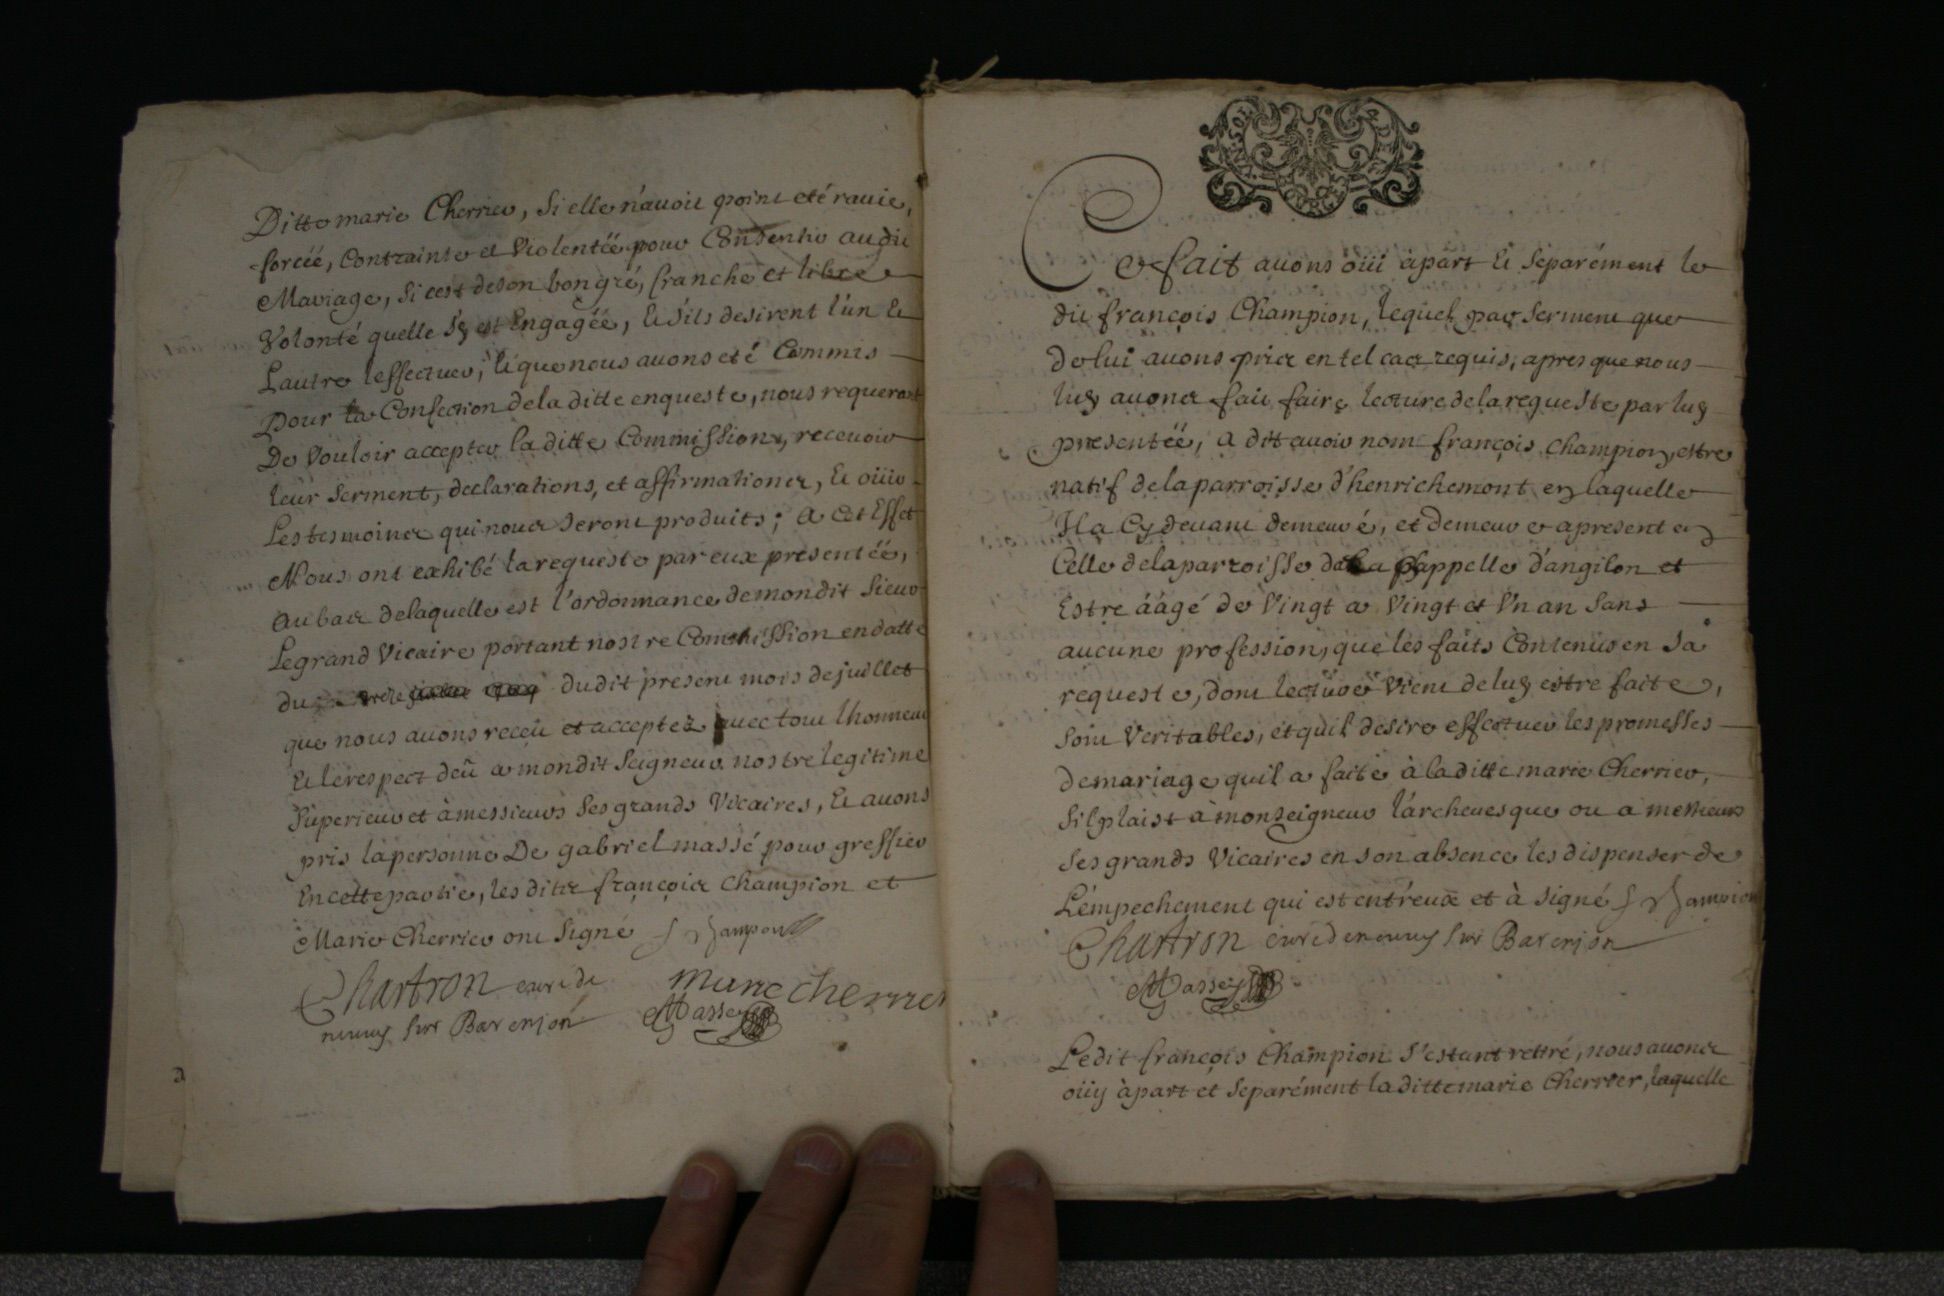 Ditte marie Cherrier, Si elle n'avoit point eté ravie,
forcéé, Contrainte et Violentéé pour Consentir audit
Mariage, Si cest de son bon gré, franche et libre
Volonté quelle s'y est Engagéé, Et s'ils desirent l'un Et
Lautre leffectuer, Et que nous avons eté Commis
Pour la Confection de la ditte enqueste, nous requerant
De Vouloir accepter la ditte Commission, recevoir
leur Serment, declarations, et affirmations, Et oüir
Les tesmoins qui nous Seront produits; A Cet Effet
Nous ont exhibé la requeste par eux presentéé,
au bas de laquelle est l'ordonnance de mondit Sieur
Le grand Vicaire portant nostre Commission en datte
du dudit present mois de juillet
que nous avons receü et acceptez avec tout lhonneur
Et le respect deü a mondit Seigneur nostre legitime
Superieur et à messieurs Ses grands Vicaires, Et avons
pris la personne De gabriel massé pour greffier
En cette partie, les dits françois Champion et
Marie Cherrier ont Signé f Champion
Chartron curé de Marie cherrier
neuvy sur Barenjon Massé
Ce fait avons oüi àpart Et Separément le
dit françois Champion, lequel par Serment que
de lui avons pris en tel cas requis, apres que nous
luy avons fait faire lecture de la requeste par luy
presentéé, a dit avoir nom françois Champion, estre
natif de la parroisse d'henrichemont en laquelle
Il a Cy devant demeuré, et demeure apresent en
Celle de la parroisse de la Chappelle d'angilon et
Estre áàgé de Vingt a Vingt et Un an Sans
aucune profession, que les faits Contenus en Sa
requeste, dont lecture Vient de luy estre faite,
Sont Veritables, et quil desire effectuer les promesses
de mariage quil a faite à la ditte marie Cherrier,
Sil plaist à monseigneur l'archevesque ou a messieurs
Ses grands Vicaires en son absence les dispenser de
L'empechement qui est entréux et à Signé f Champion
Chartron curé de neuvy sur Barenjon
Massé
Ledit françois Champion S'estant retiré, nous avons
oüy àpart et Separément la ditte marie Cherrier, laquelle